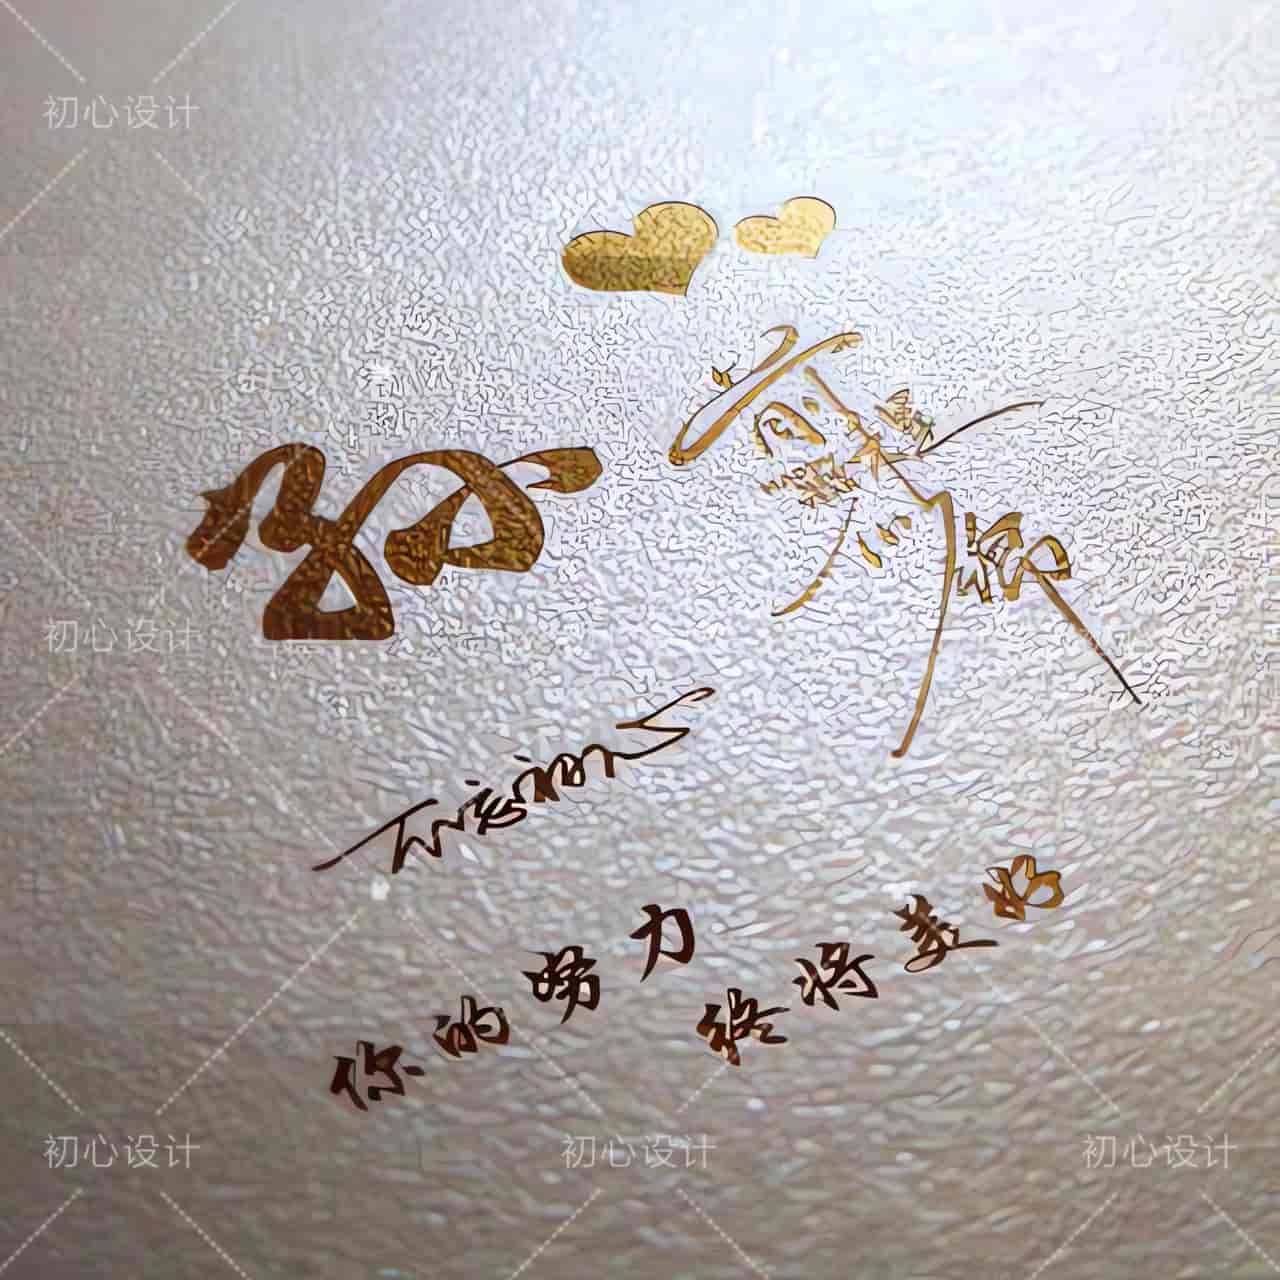 初心设计
初心设计
不忘初心
你的努力
终将美好
初心设计 初心设计 初心设计